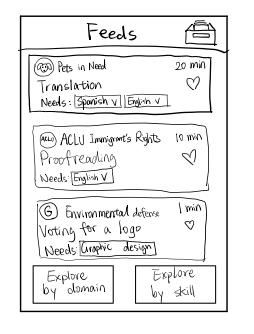 Feeds
Pets in Need 20 min
Translation
Needs: Spanish v English v
ACLU ACLU Immigrant's Rights 10 min
Proofreading
Needs: English v
G Environmental defense 1 min
Voting for a logo
Needs: Graphic design
Explore by domain
Explore by skill